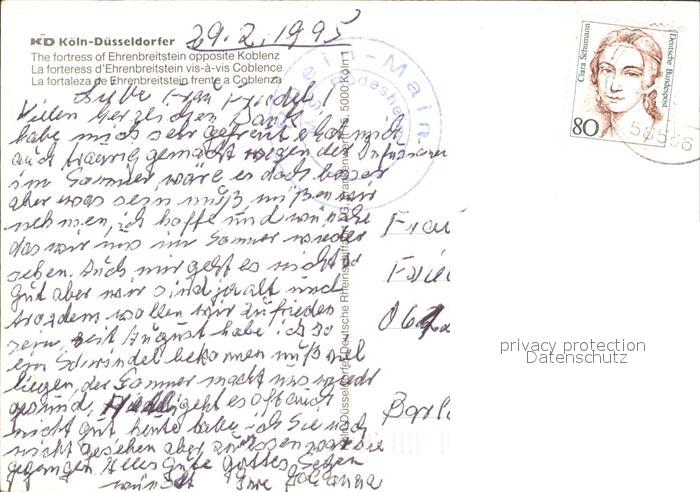 KD Köln-Düsseldorfer
29.2.1995
The fortress of Ehrenbreitstein opposite Koblenz
La forteress d'Ehrenbreitstein vis-à-vis Coblence
La fortaleza de Ehrenbreitstein frente a Coblenza
Liebe Frau Friedel!
Vielen herzlichen Dank
habe mich sehr gefreut mich
auch traurig gemacht wegen der Infusionen
im Sommer wäre es doch besser
aber was sein muß müßen wir
nehmen, ich hoffe und wünsche
das wir uns im Sommer wieder
sehen. Auch mir geht es nicht
gut aber wir sind ja alt und
trozdem wollen wir zufrieden
sein, seit August habe ich so
ein Schwindel bekomen muß viel
liegen, der Sommer macht uns wieder
gesund, geht es oft auch
nicht gut heute habe ich Sie noch
nicht gesehen aber zum Essen war sie
gegangen Alles Gute gottes Segen
wünscht Ihre Johanna
Köln-Düsseldorfer Deutsche Rheinschiffahrt 5000 Köln 1
Rhein-Main
Rüdesheim
Clara Schumann
Deutsche Bundespost
80
Frau
privacy protection
Datenschutz